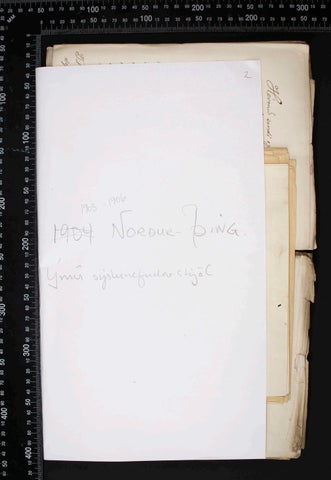 2
1903 - 1906
1904 NORÐUR-ÞING.
Ýmis sýslunefndarskjöl